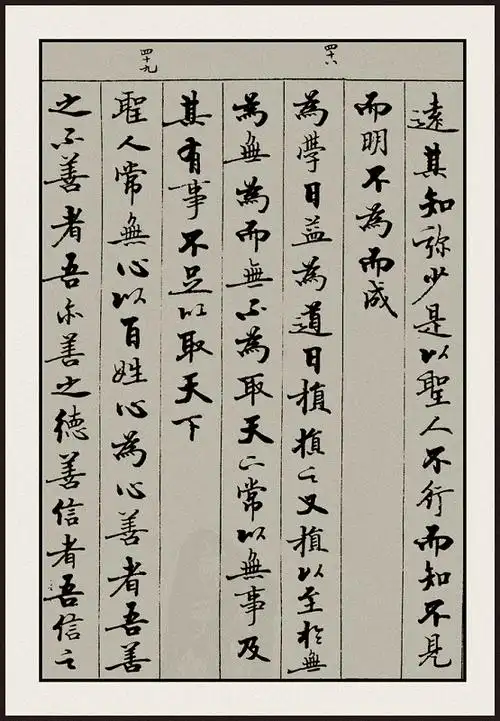 遠其知弥少是以聖人不行而知不見
而明不為而成
四十八
為學日益為道日損損之又損以至於無
為無為而無不為取天下常以無事及
其有事不足以取天下
四十九
聖人常無心以百姓心為心善者吾善
之不善者吾亦善之德善信者吾信之